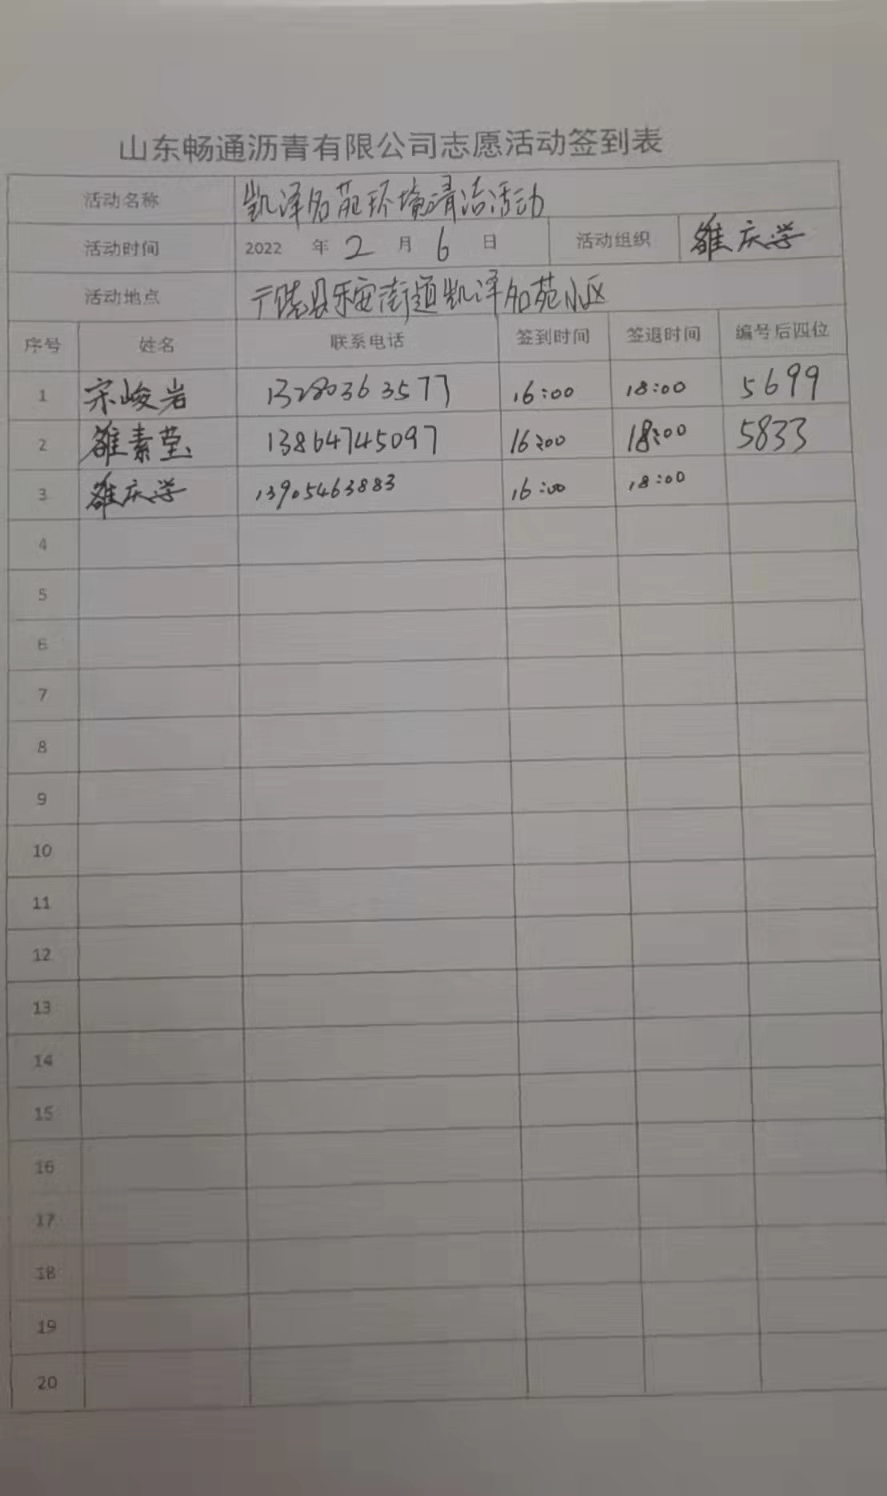 山东畅通沥青有限公司志愿活动签到表
活动名称 凯泽名苑环境清洁活动
活动时间 2022 年 2 月 6 日 活动组织 雒庆学
活动地点 广饶县乐安街道凯泽名苑小区
序号 姓名 联系电话 签到时间 签退时间 编号后四位
1 宋峻岩 13280363577 16:00 18:00 5699
2 雒素莹 13864745097 16:00 18:00 5833
3 雒庆学 13905463883 16:00 18:00
4
5
6
7
8
9
10
11
12
13
14
15
16
17
18
19
20